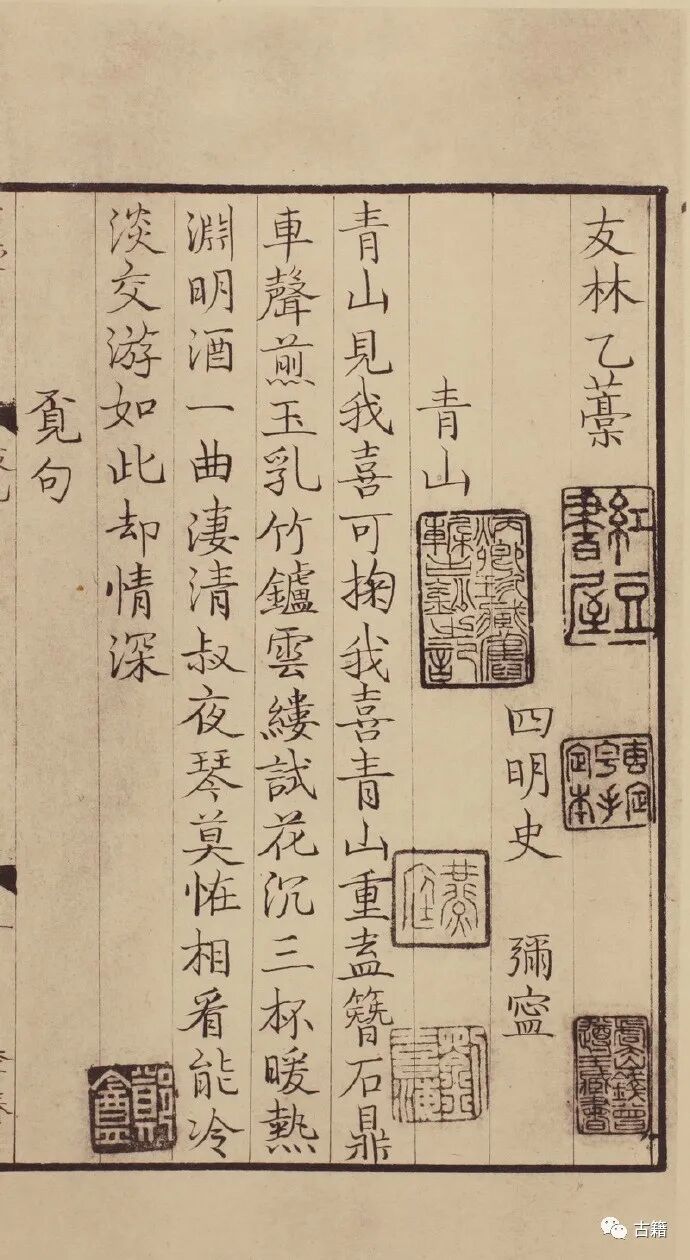 友林乙藁
四明史 彌寧
青山
青山見我喜可掬我喜青山重盍簪石鼎
車聲煎玉乳竹鑪雲縷試花沉三杯暖熱
淵明酒一曲淒清叔夜琴莫恠相看能冷
淡交游如此却情深
覔句
紅豆書屋
虞山錢曾遵王藏書
古籍